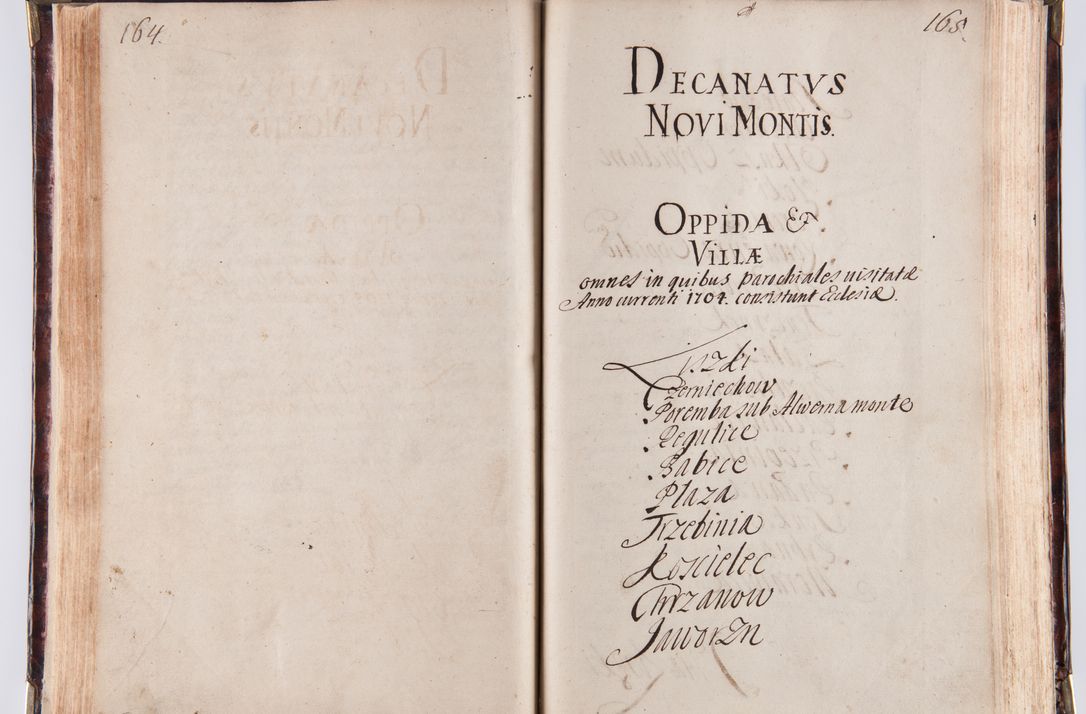 164.
165.
DECANATVS
NOVI MONTIS.
OPPIDA &
VILLÆ
omnes in quibus parochiales uisitatæ
Anno currenti 1704. consistunt Ecclesiæ.
Liszki
Czerniechow
Poremba sub Alwerna monte
Regulice
Babice
Plaza
Trzebinia
Koscielec
Chrzanow
Jaworzn